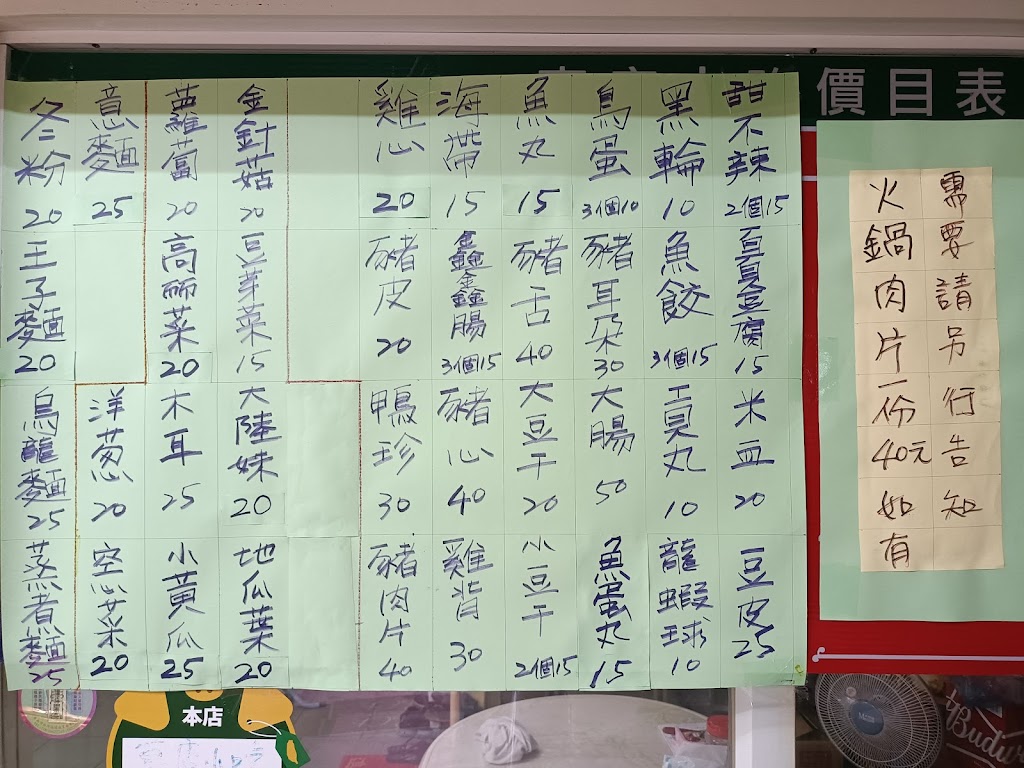 價目表
火鍋肉片一份40元如有
需要請另行告知
甜不辣 2個15
黑輪 10
鳥蛋 3個10
魚丸 15
海帶 15
雞心 20
金針菇 20
蘿蔔 20
意麵 25
冬粉 20
百頁豆腐 15
魚餃 3個15
豬耳朵 30
豬舌 40
鑫鑫腸 3個15
豬皮 20
豆芽菜 15
高麗菜 20
王子麵 20
米血 20
貢丸 10
大腸 50
大豆干 20
豬心 40
鴨珍 30
大陸妹 20
木耳 25
洋葱 20
烏龍麵 25
豆皮 25
龍蝦球 10
魚蛋丸 15
小豆干 2個15
雞背 30
豬肉片 40
地瓜葉 20
小黃瓜 25
空心菜 20
蒸煮麵 25
本店